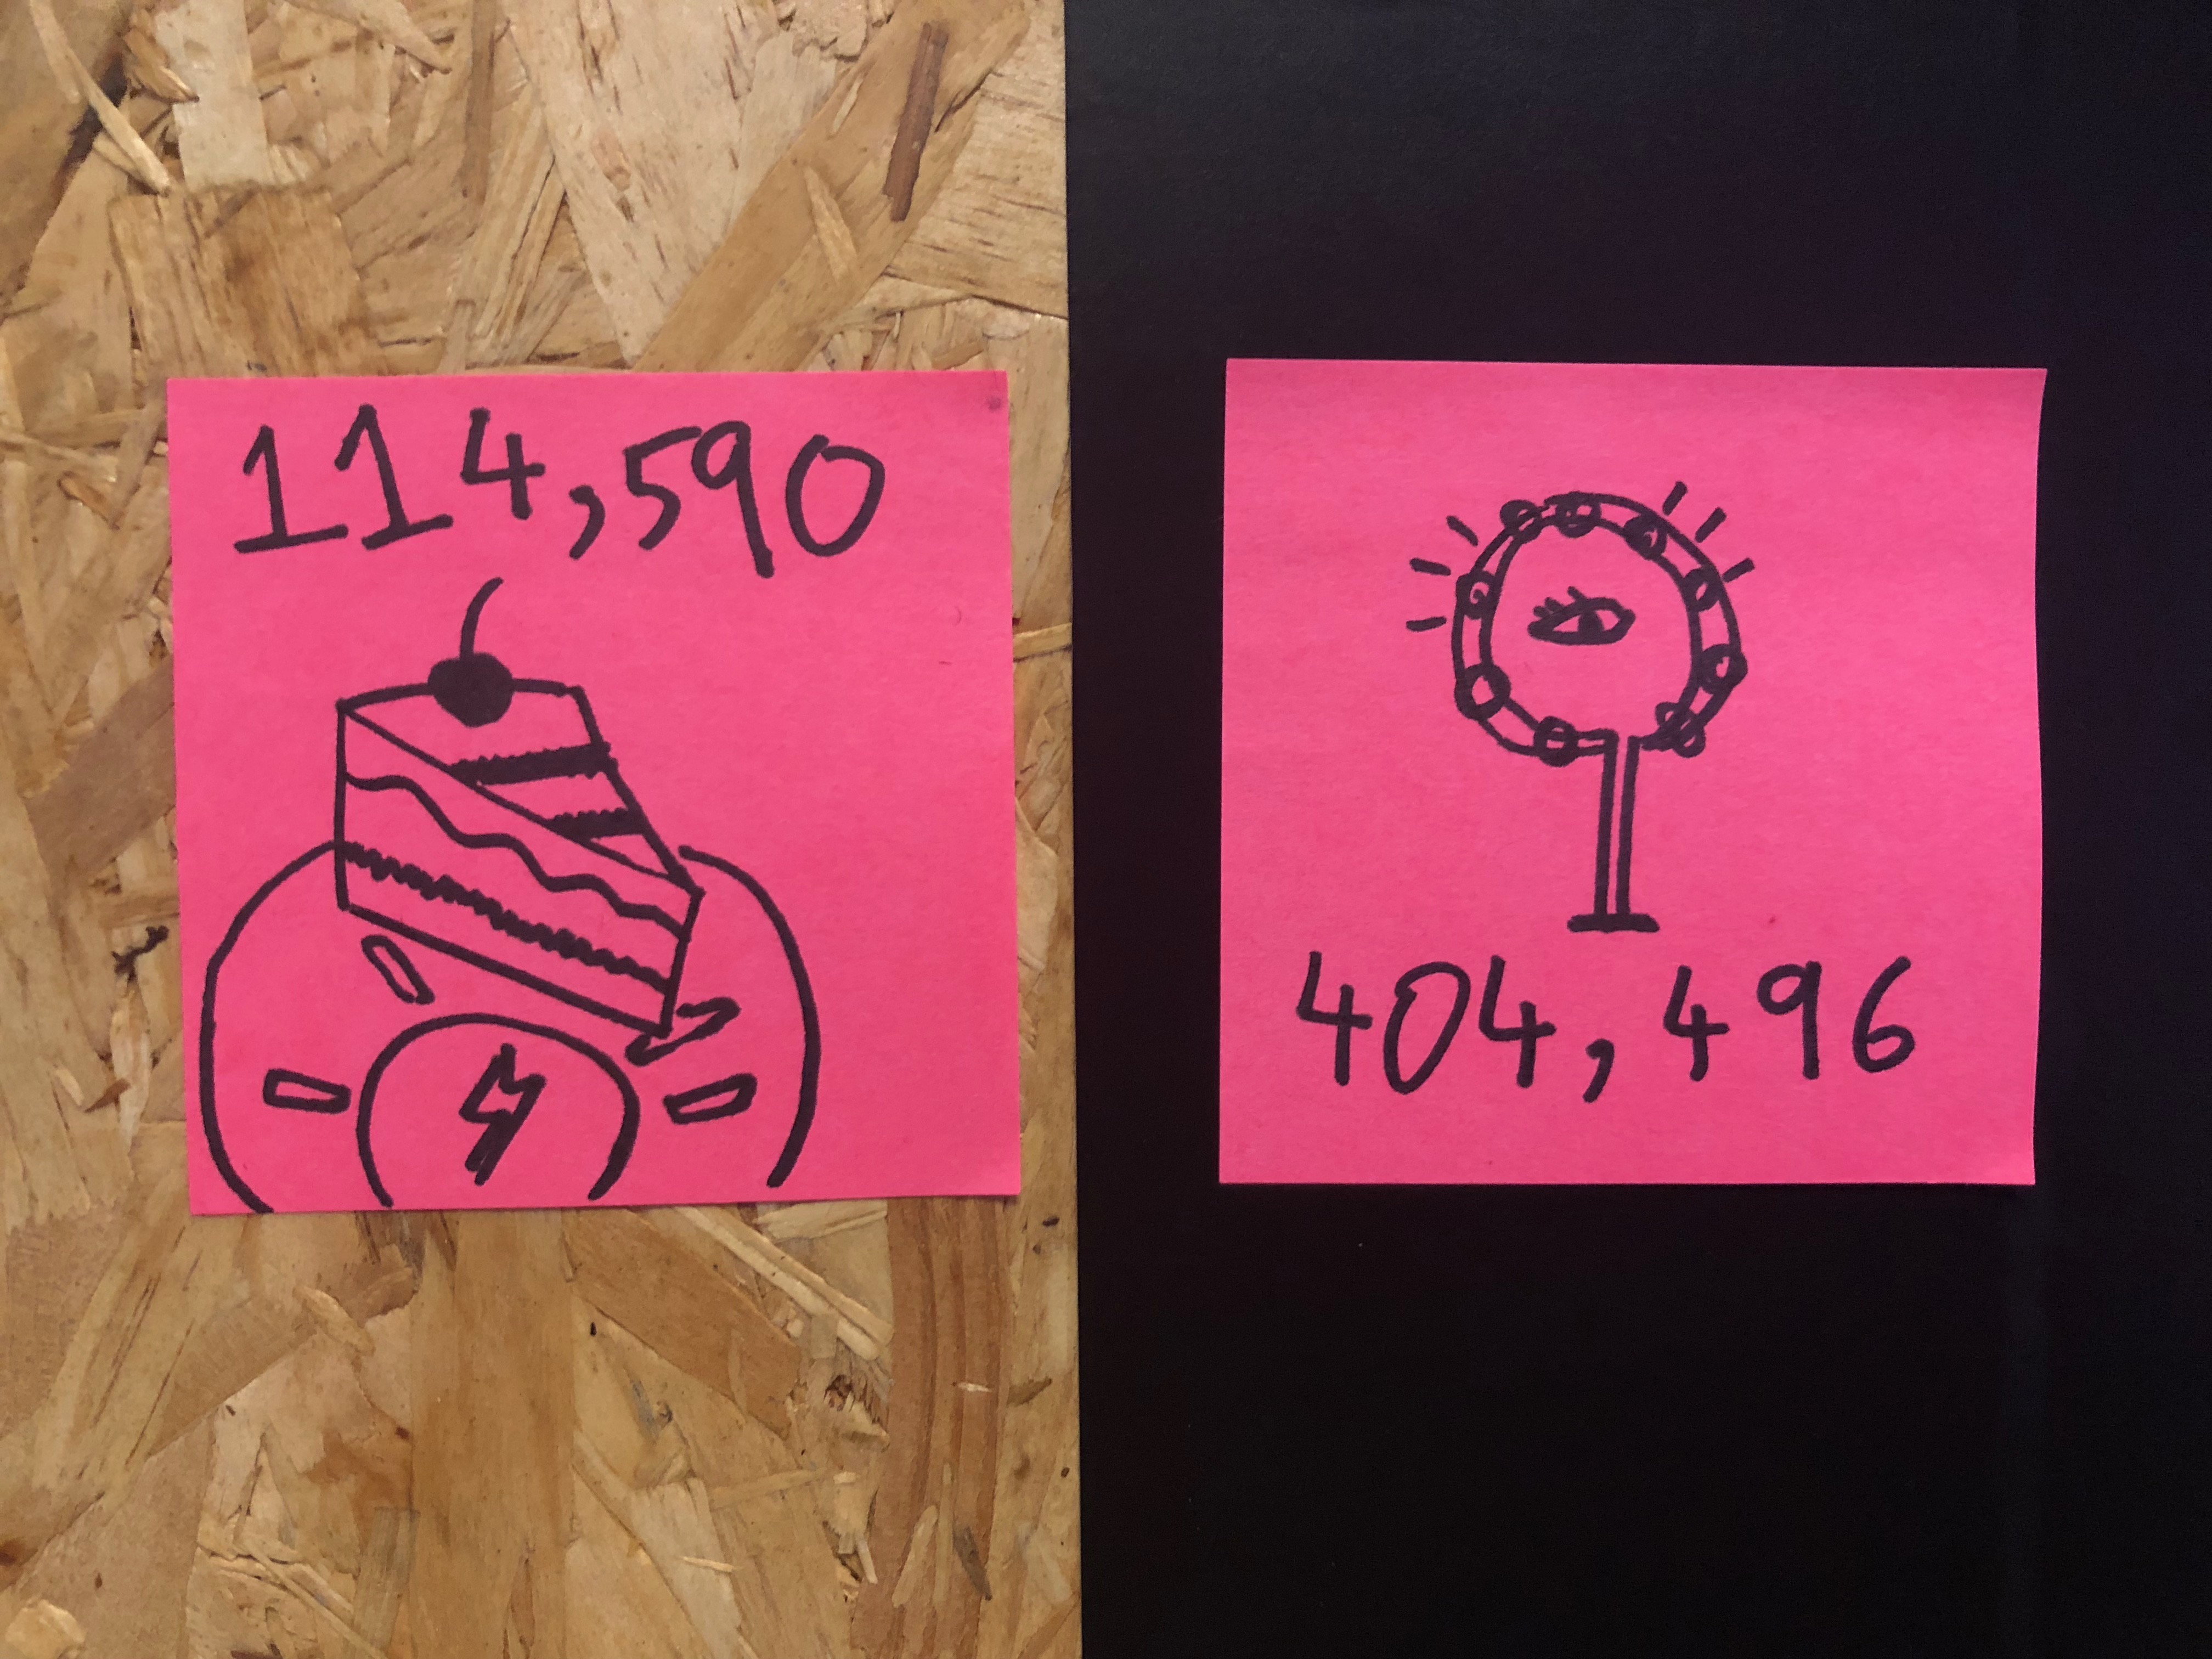 114,590
404,496